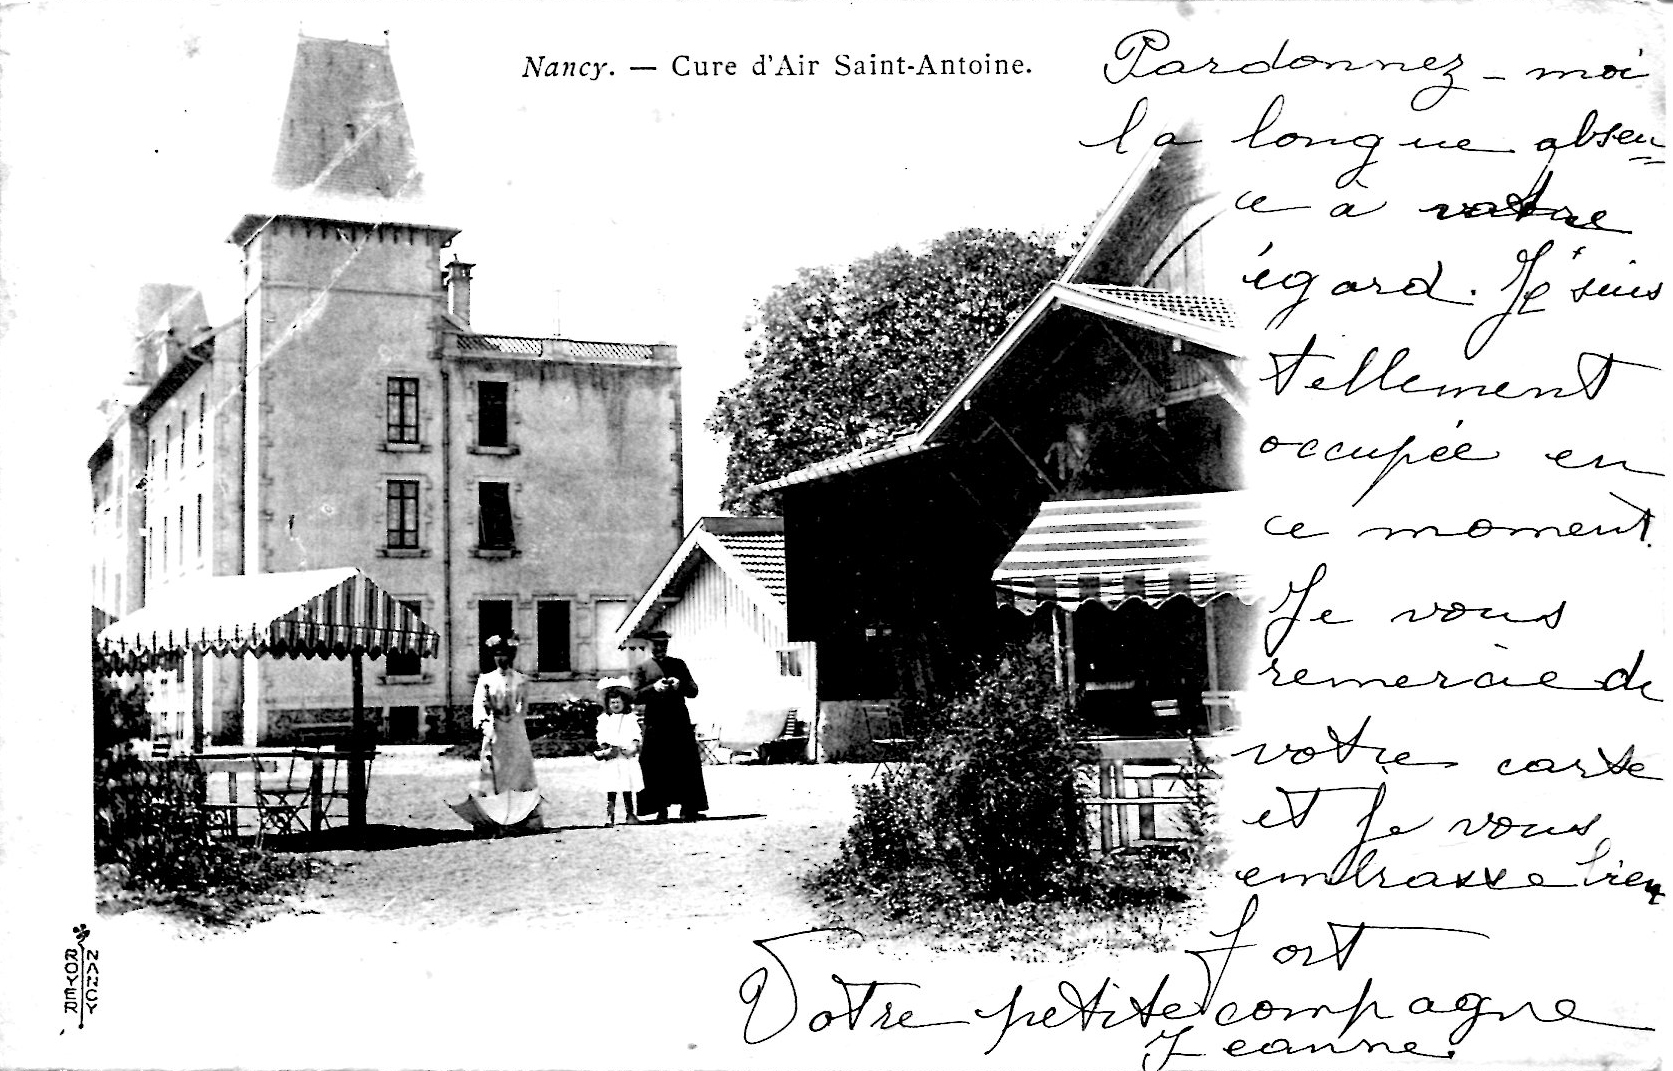 Nancy. — Cure d'Air Saint-Antoine.
Pardonnez-moi
la longue absen=
ce à votre
égard. Je suis
tellement
occupée en
ce moment.
Je vous
remercie de
votre carte
et je vous
embrasse bien
fort
Votre petite compagne
Jeanne.
ROYER
NANCY